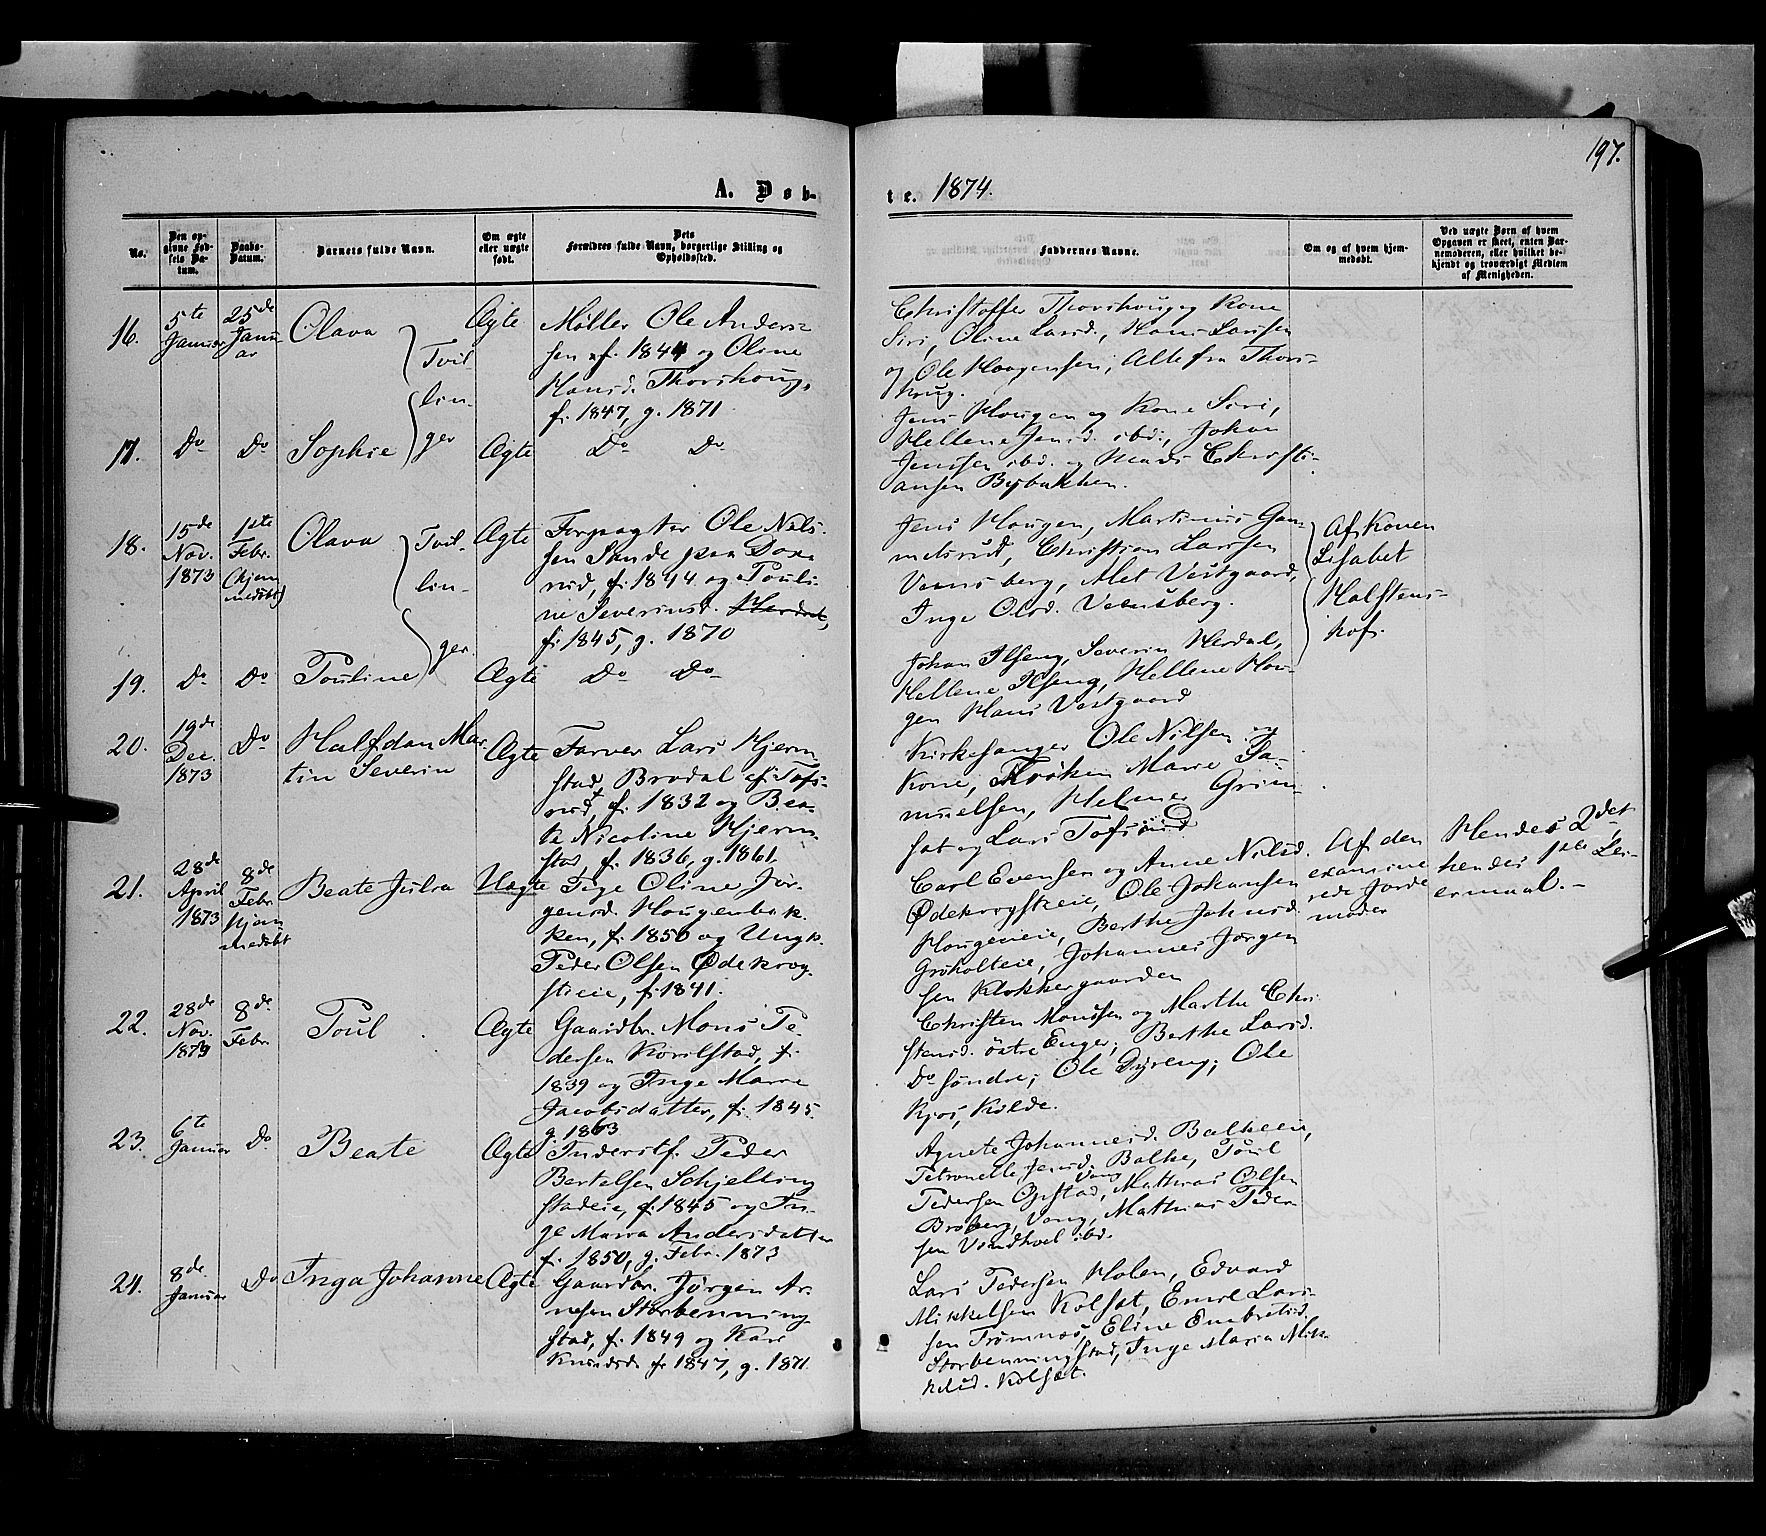 197.
A. Døb-
te. 1874.
No.
Den op-
givne Fød-
sels Da-
tum.
Daabs-
Datum.
Barnets fulde Navn.
Om ægte
eller uægte
født.
Dets
Forældres fulde Navn, borgerlige Stilling og
Opholdssted.
Faddernes Navne.
Om og af hvem hjem-
medøbt.
Ved uægte Børn af hvem
Opgaven er skeet, enten Bar-
nemoderen, eller hvilket be-
kjendt og troværdigt Medlem
af Menigheden.
16.
5te
Januar
25de
Janu-
ar
Olava
Tvil
lin-
ger
Ægte
Møller Ole Ander-
sen f. 1844 og Oline
Hansd. Thorshoug,
f. 1847, g. 1871
Christoffer Thorshoug og Kone
Siri, Oline Larsd., Hans Larssen
og Ole Haagensen, Alle fra Thors-
houg.
17.
Do
Do
Sophie
Ægte
Do Do
Jens Hougen og Kone Siri,
Hellene Jensd. ibd., Johan
Jenssen ibd. og Mads Christi-
ansen Bybakken.
18.
15de
Nov.
1873
1ste
Febr.
(hjem
medøbt)
Olava
Tvil-
lin-
ger
Ægte
Forpagter Ole Nils-
sen Sande paa Dox-
rud, f. 1844 og Pouli-
ne Severinsd. Herdal,
f. 1845, g. 1870
Jens Hougen, Martinus Gam-
melsrud, Christian Larssen
Venusberg, Alet Vestgaard,
Inge Olsd. Venusberg.
Af Konen
Lisabet
Halstens-
hof.
19.
Do
Do
Pouline
Ægte
Do Do
Johan Ilseng, Severin Herdal,
Hellene Ilseng, Hellene Hou-
gen Hans Vestgaard
20.
19de
Dec.
1873
Do
Halfdan Mar-
tin Severin
Ægte
Farver Lars Hjerm-
stad, Brodal af Tofs-
rud, f. 1832 og Bea-
te Nicoline Hjerm-
stad, f. 1836, g. 1861.
Kirkesanger Ole Nilsen og
Kone, Frøken Marie Sa-
muelsen, Helmer Grim-
sat og Lars Tofsrud
21.
28de
April
1873
8de
Febr.
Hjem
medøbt
Beate Julia
Uægte
Pige Oline Jør-
gensd. Hougenbak-
ken, f. 1850 og Ungk.
Peder Olsen Ødekrog-
steie, f. 1841.
Carl Evensen og Anne Nilsd.
Ødekrogsteie, Ole Johansen
Hougeneie, Berthe Johnsd.
Grøholteie, Johannes Jørgen
sen Klokkergaarden
Af den
examine
rede Jorde
moder
Hendes 2det
hendes 1ste Lei-
ermaal.-
22.
28de
Nov.
1873
8de
Febr
Poul
Ægte
Gaardbr. Mons Pe-
dersen Korilstad, f.
1839 og Inge Marie
Jacobsdatter, f. 1845.
g. 1863
Christen Monssen og Marthe Chri-
stensd. østre Enger, Berthe Larsd.
Do søndre; Ole Dyreng; Ole
Kjos, Kilde.
23.
6te
Januar
Do
Beate
Ægte
Inderstf. Peder
Bertelsen Schjelling
stadeie, f. 1845 og In-
ge Maria Andersdatter
f. 1850, g. Febr. 1873
Agnete Johannesd. Balkeeie,
Petronelle Jensd. Balke, Poul
Pedersen Opstad, Vang Mathias Olsen
Broberg, Vang, Mathias Peder-
sen Vindhvel ibd.
24.
8de
Januar
Do
Inga Johanne
Ægte
Gaardbr. Jørgen Ar-
nesen Storbenning-
stad, f. 1849 og Kari
Knudsd. f. 1847, g. 1871.
Lars Pedersen Holen, Edvard
Mikkelsen Kolsæt, Emil Lars-
sen Trømnæs, Eline Embretsd.
Storbenningstad, Inge Maria Mik-
kelsd. Kolsæt.